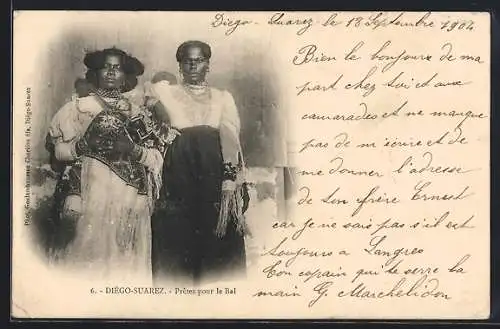 Diego-Suarez le 18 Septembre 1904
Bien le bonjours de ma
part chez toi et aux
camarades et ne manque
pas de m'écrire et de
me donner l'adresse
de ton frère Ernest
car je ne sais pas s'il est
toujours a Langres
Ton copain qui te serre la
main G. Marchelidon
6. - DIÉGO-SUAREZ. - Prêtes pour le Bal